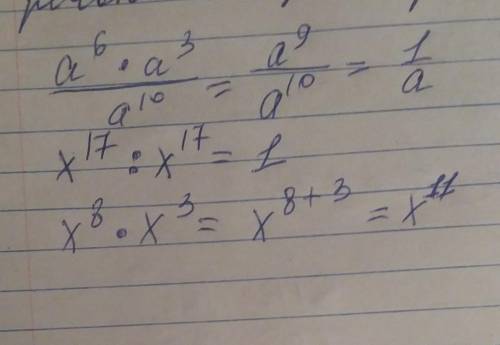 a⁶ · a³ / a¹⁰ = a⁹ / a¹⁰ = 1 / a
x¹⁷ : x¹⁷ = 1
x⁸ · x³ = x⁸⁺³ = x¹¹